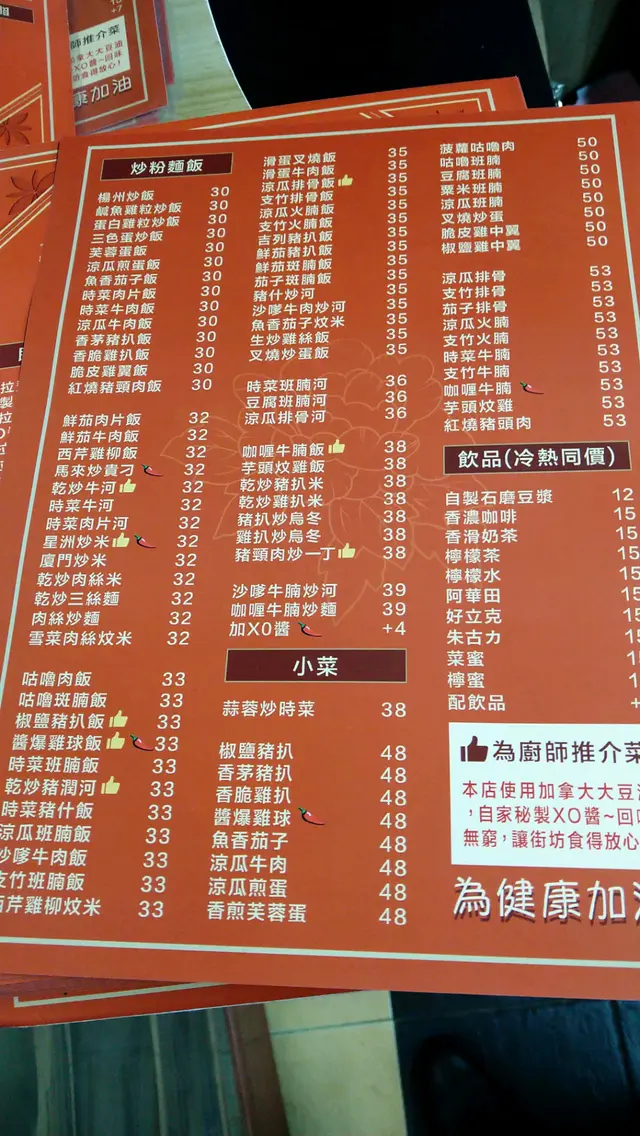 師推介菜
拿大大豆油
XO醬~回味
坊食得放心!
康加油
炒粉麵飯
楊州炒飯 30
鹹魚雞粒炒飯 30
蛋白雞粒炒飯 30
三色蛋炒飯 30
芙蓉蛋飯 30
涼瓜煎蛋飯 30
魚香茄子飯 30
時菜肉片飯 30
時菜牛肉飯 30
涼瓜牛肉飯 30
香茅豬扒飯 30
香脆雞扒飯 30
脆皮雞翼飯 30
紅燒豬頸肉飯 30
鮮茄肉片飯 32
鮮茄牛肉飯 32
西芹雞柳飯 32
馬來炒貴刁 32
乾炒牛河 32
時菜牛河 32
時菜肉片河 32
星洲炒米 32
廈門炒米 32
乾炒肉絲米 32
乾炒三絲麵 32
肉絲炒麵 32
雪菜肉絲炆米 32
咕嚕肉飯 33
咕嚕班腩飯 33
椒鹽豬扒飯 33
醬爆雞球飯 33
時菜班腩飯 33
乾炒豬潤河 33
時菜豬什飯 33
涼瓜班腩飯 33
沙嗲牛肉飯 33
支竹班腩飯 33
西芹雞柳炆米 33
滑蛋叉燒飯 35
滑蛋牛肉飯 35
涼瓜排骨飯 35
支竹排骨飯 35
涼瓜火腩飯 35
支竹火腩飯 35
吉列豬扒飯 35
鮮茄豬扒飯 35
鮮茄班腩飯 35
茄子班腩飯 35
豬什炒河 35
沙嗲牛肉炒河 35
魚香茄子炆米 35
生炒雞絲飯 35
叉燒炒蛋飯 35
時菜班腩河 36
豆腐班腩河 36
涼瓜排骨河 36
咖喱牛腩飯 38
芋頭炆雞飯 38
乾炒豬扒米 38
乾炒雞扒米 38
豬扒炒烏冬 38
雞扒炒烏冬 38
豬頸肉炒一丁 38
沙嗲牛腩炒河 39
咖喱牛腩炒麵 39
加XO醬 +4
小菜
蒜蓉炒時菜 38
椒鹽豬扒 48
香茅豬扒 48
香脆雞扒 48
醬爆雞球 48
魚香茄子 48
涼瓜牛肉 48
涼瓜煎蛋 48
香煎芙蓉蛋 48
菠蘿咕嚕肉 50
咕嚕班腩 50
豆腐班腩 50
粟米班腩 50
涼瓜班腩 50
叉燒炒蛋 50
脆皮雞中翼 50
椒鹽雞中翼 50
涼瓜排骨 53
支竹排骨 53
茄子排骨 53
涼瓜火腩 53
支竹火腩 53
時菜牛腩 53
支竹牛腩 53
咖喱牛腩 53
芋頭炆雞 53
紅燒豬頸肉 53
飲品(冷熱同價)
自製石磨豆漿 12
香濃咖啡 15
香滑奶茶 15
檸檬茶 15
檸檬水 15
阿華田 15
好立克 15
朱古力 15
菜蜜
檸蜜
配飲品
為廚師推介菜
本店使用加拿大大豆油
,自家秘製XO醬~回味
無窮,讓街坊食得放心
為健康加油